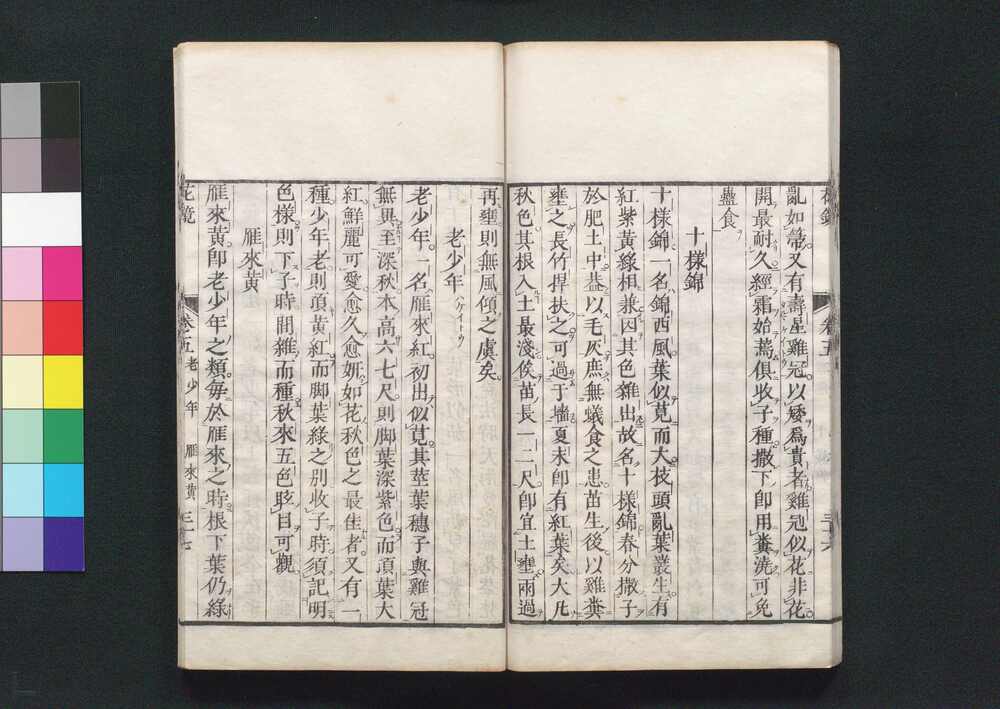 花鏡 卷五 三十六
亂如箒又有壽星雞冠以矮爲貴者雞冠似花非花
開最耐久經霜始蔫俱收子種撒下即用糞澆可免
蟲食
十樣錦
十樣錦一名錦西風葉似莧而大枝頭亂葉叢生有
紅紫黃綠相兼因其色雜出故名十樣錦春分撒子
於肥土中葢以毛灰庶無蟻食之患苗生後以雞糞
壅之長竹捍扶之可過于墻夏末即有紅葉矣大凡
秋色其根入土最淺俟苗長一二尺卽宜土壅雨過
再壅則無風傾之虞矣
老少年 ハゲイトウ
老少年一名雁來紅初出似莧其莖葉穗子與雞冠
無異至深秋本高六七尺則脚葉深紫色而頂葉大
紅鮮麗可愛愈久愈妍如花秋色之最佳者又有一
種少年老則頂黃紅而脚葉綠之別收子時須記明
色樣則下子時間雜而種秋來五色眩目可觀
雁來黃
雁來黃卽老少年之類每於雁來之時根下葉仍綠
花鏡 卷五 老少年 雁來黃 三十七